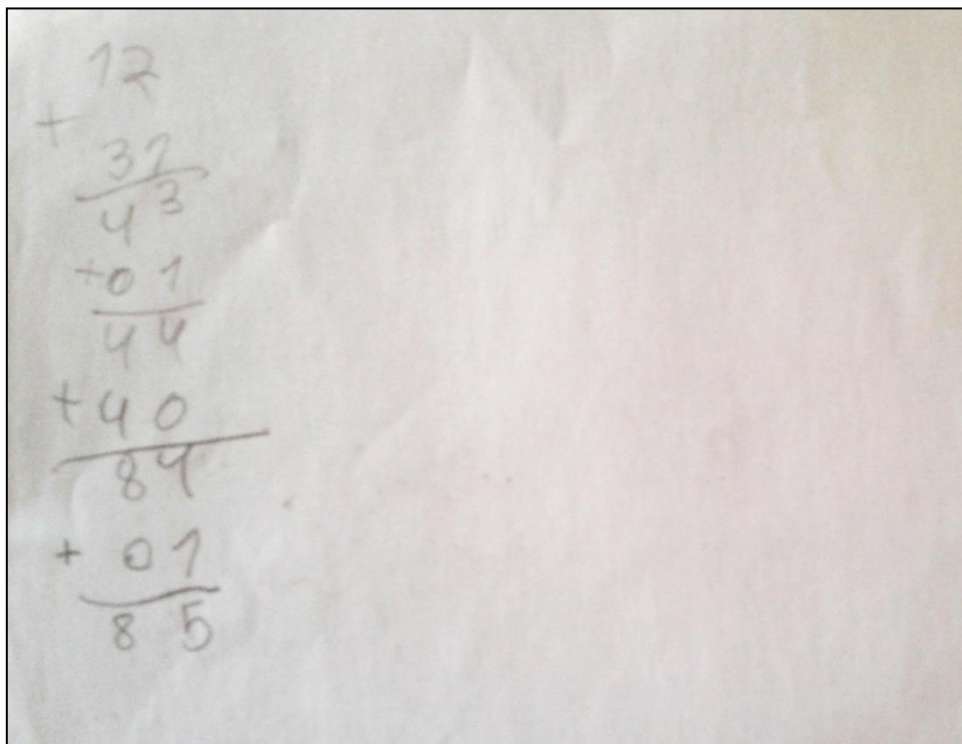 12
+
31
43
+01
44
+40
84
+ 01
85